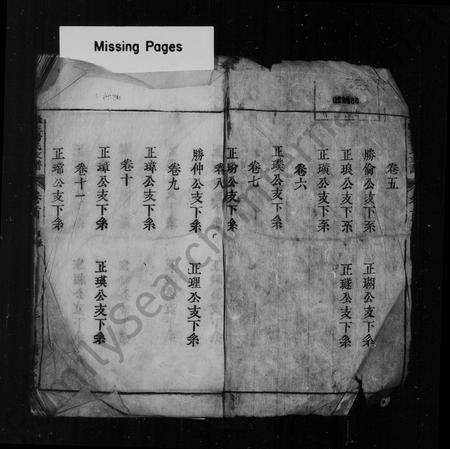 Missing Pages
卷五
勝倫公支下系 正瑚公支下系
正琅公支下系 正璲公支下系
正璜公支下系
卷六
正璞公支下系
卷七
正玢公支下系
卷八
勝仲公支下系 正理公支下系
卷九
正璋公支下系
卷十
正璋公支下系 正瑛公支下系
卷十一
正瑺公支下系
FamilySearch International